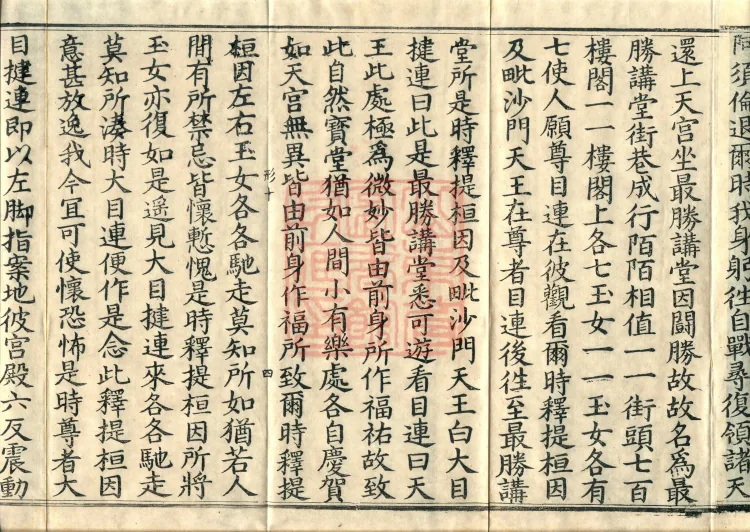 阿須倫退爾時我身躬往自戰尋復領諸天
還上天宮坐最勝講堂因鬪勝故故名爲最
勝講堂街巷成行陌陌相值一一街頭七百
樓閣一一樓閣上各七玉女一一玉女各有
七使人願尊目連在彼觀看爾時釋提桓因
及毗沙門天王在尊者目連後往至最勝講
堂所是時釋提桓因及毗沙門天王白大目
揵連曰此是最勝講堂悉可遊看目連曰天
王此處極爲微妙皆由前身所作福祐故致
此自然寶堂猶如人間小有樂處各自慶賀
如天宮無異皆由前身作福所致爾時釋提
形十 四
桓因左右玉女各各馳走莫知所如猶若人
間有所禁忌皆懷慙愧是時釋提桓因所將
玉女亦復如是遙見大目揵連來各各馳走
莫知所湊時大目連便作是念此釋提桓因
意甚放逸我今宜可使懷恐怖是時尊者大
目揵連即以左脚指案地彼宮殿六反震動